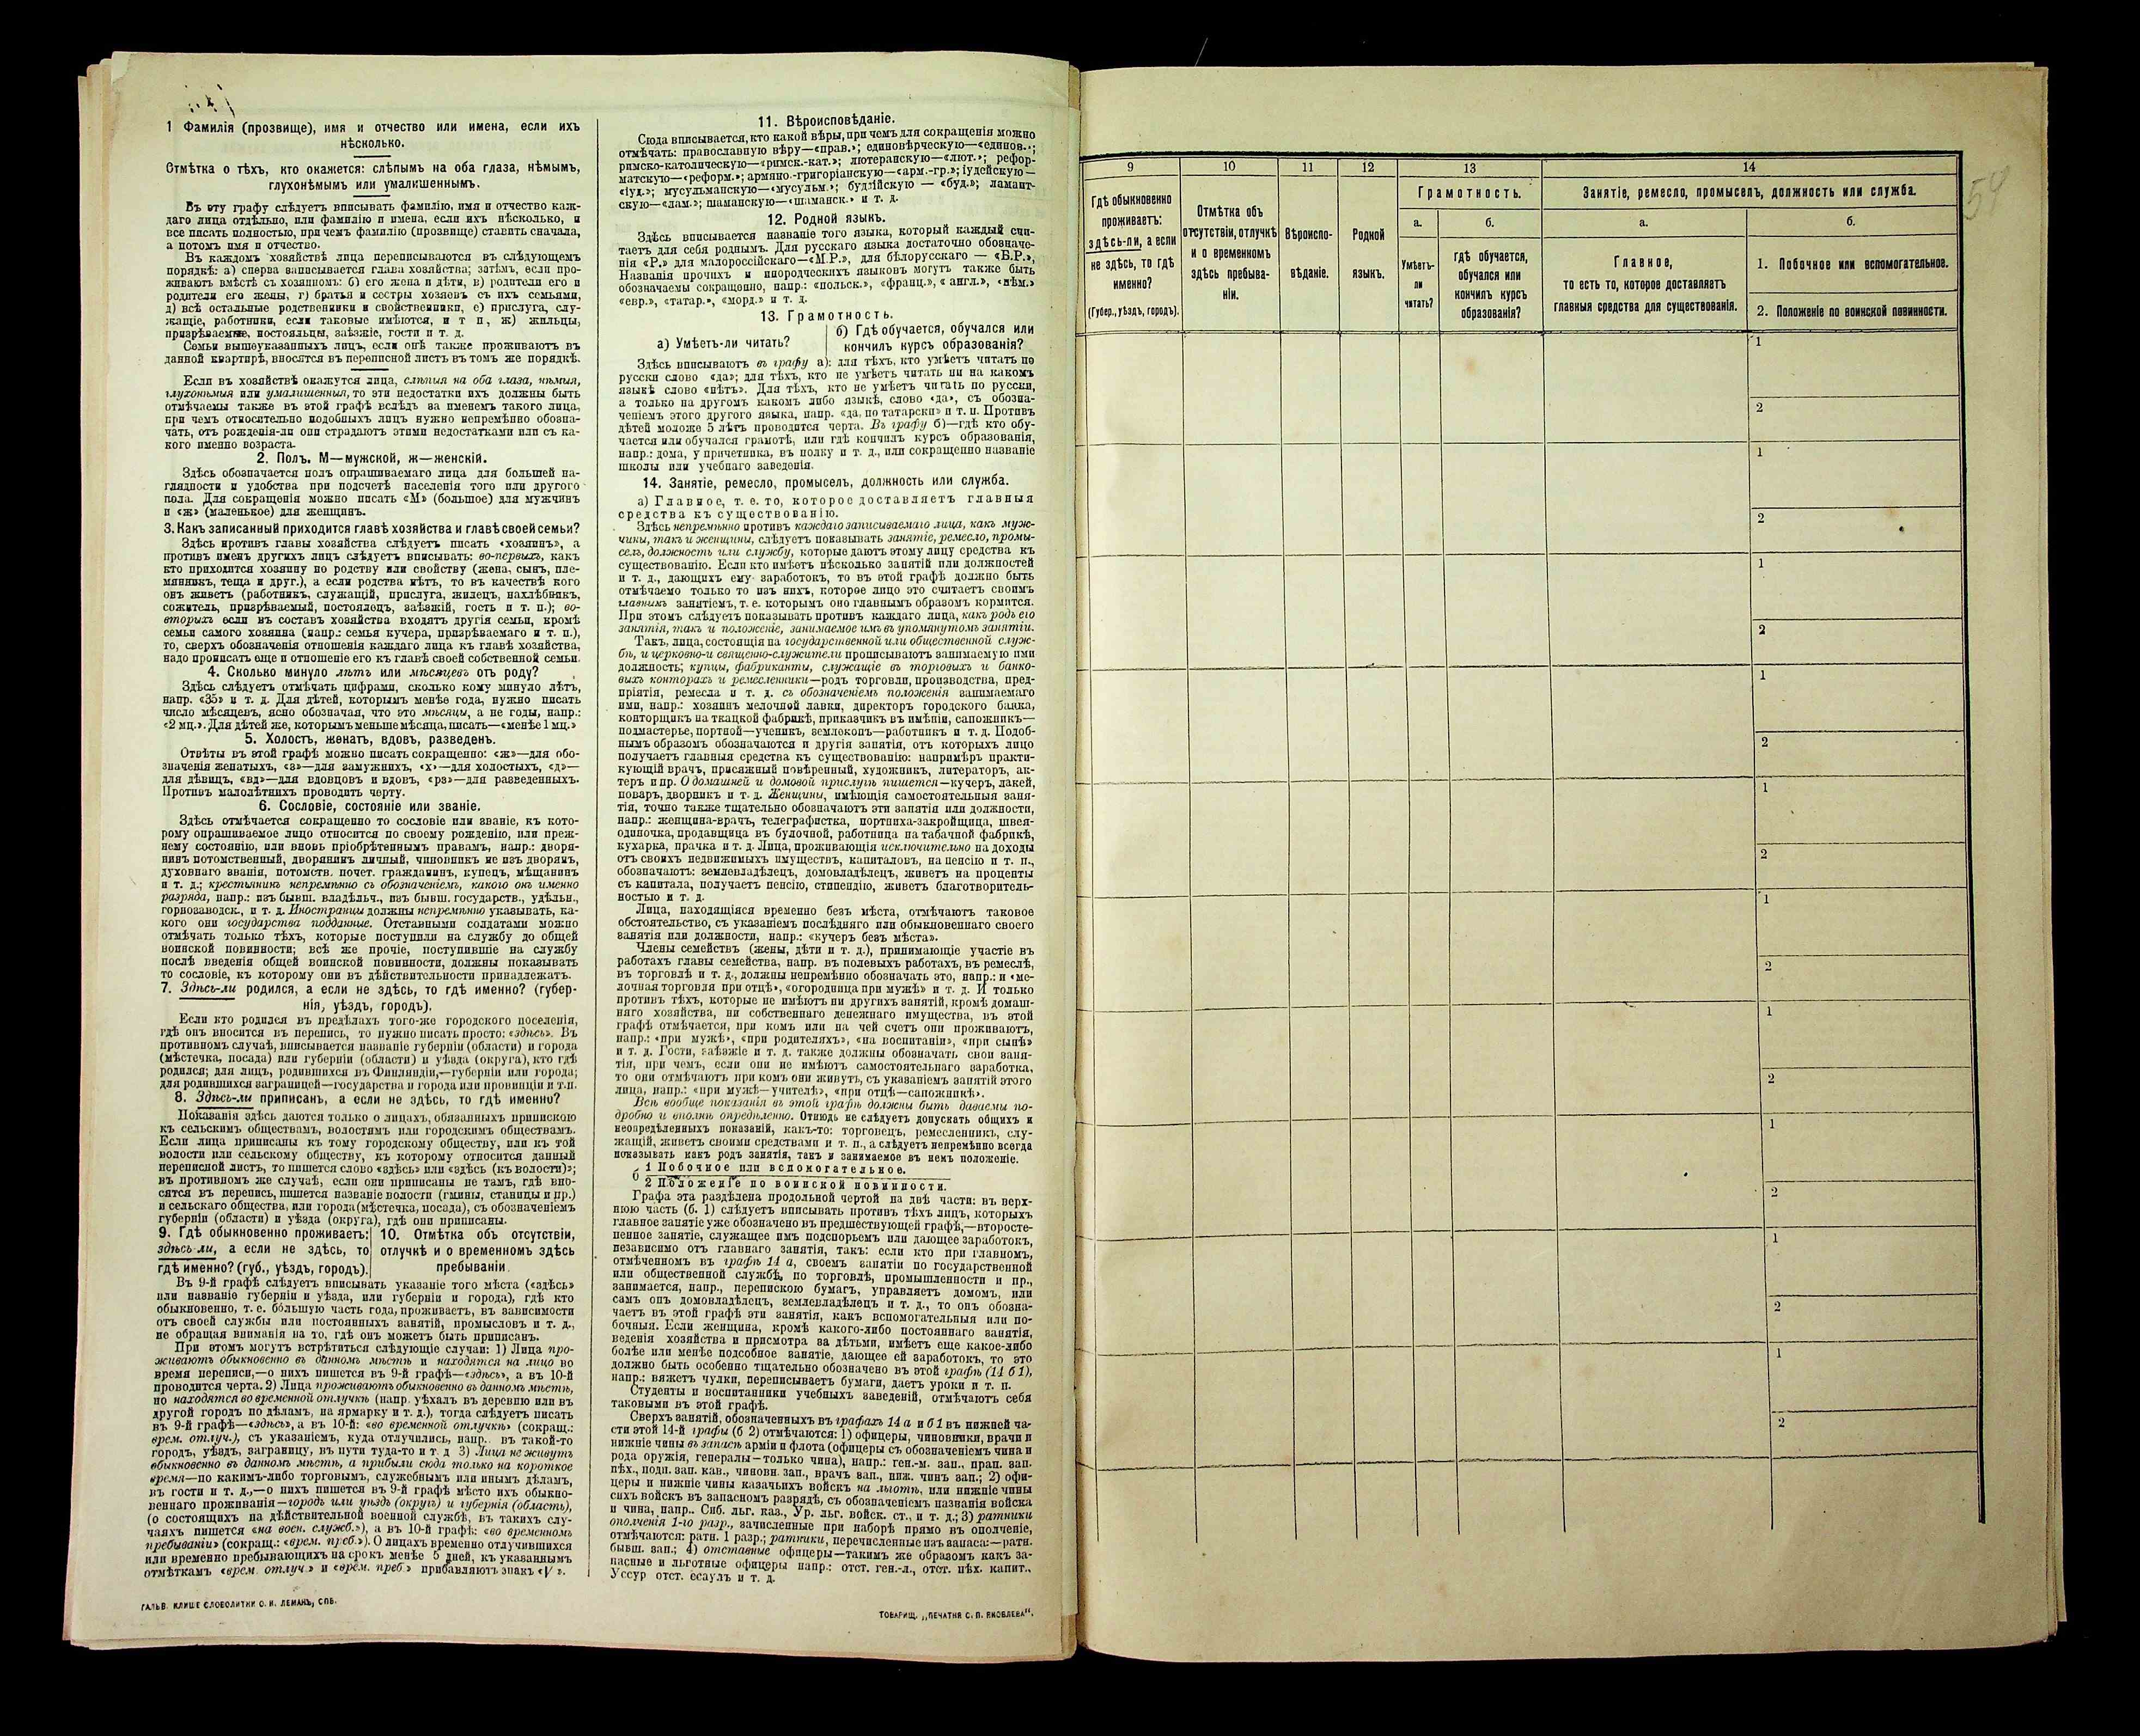 1 Фамилія (прозвище), имя и отчество или имена, если ихъ
нѣсколько.
Отмѣтка о тѣхъ, кто окажется: слѣпымъ на оба глаза, нѣмымъ,
глухонѣмымъ или умалишеннымъ.
Въ эту графу слѣдуетъ вписывать фамилію, имя и отчество каж-
даго лица отдѣльно, или фамилію и имена, если ихъ нѣсколько, и
все писать полностью, при чемъ фамилію (прозвище) ставить сначала,
а потомъ имя и отчество.
Въ каждомъ хозяйствѣ лица переписываются въ слѣдующемъ
порядкѣ: а) сперва записывается глава хозяйства; затѣмъ, если про-
живаютъ вмѣстѣ съ хозяиномъ: б) его жена и дѣти, в) родители его и
родители его жены, г) братья и сестры хозяевъ съ ихъ семьями,
д) всѣ остальные родственники и свойственники, е) прислуга, слу-
жащіе, работники, если таковые имѣются, и т п, ж) жильцы,
призрѣваемые, постояльцы, заѣзжіе, гости и т. д.
Семьи вышеуказанныхъ лицъ, если онѣ также проживаютъ въ
данной квартирѣ, вносятся въ переписной листъ въ томъ же порядкѣ.
Если въ хозяйствѣ окажутся лица, слѣпыя на оба глаза, нѣмыя,
глухонѣмыя или умалишенныя, то эти недостатки ихъ должны быть
отмѣчаемы также въ этой графѣ вслѣдъ за именемъ такого лица,
при чемъ относительно подобныхъ лицъ нужно непремѣнно обозна-
чать, отъ рожденія-ли они страдаютъ этими недостатками или съ ка-
кого именно возраста.
2. Полъ. М—мужской, ж—женскій.
Здѣсь обозначается полъ опрашиваемаго лица для большей на-
глядности и удобства при подсчетѣ населенія того или другого
пола. Для сокращенія можно писать «М» (большое) для мужчинъ
и «ж» (маленькое) для женщинъ.
3. Какъ записанный приходится главѣ хозяйства и главѣ своей семьи?
Здѣсь противъ главы хозяйства слѣдуетъ писать «хозяинъ», а
противъ именъ другихъ лицъ слѣдуетъ вписывать: во-первыхъ, какъ
кто приходится хозяину по родству или свойству (жена, сынъ, пле-
мянникъ, теща и друг.), а если родства нѣтъ, то въ качествѣ кого
онъ живетъ (работникъ, служащій, прислуга, жилецъ, нахлѣбникъ,
сожитель, призрѣваемый, постоялецъ, заѣзжій, гость и т. п.); во-
вторыхъ если въ составъ хозяйства входятъ другія семьи, кромѣ
семьи самого хозяина (напр.: семья кучера, призрѣваемаго и т. п.),
то, сверхъ обозначенія отношенія каждаго лица къ главѣ хозяйства,
надо прописать еще и отношеніе его къ главѣ своей собственной семьи.
4. Сколько минуло лѣтъ или мѣсяцевъ отъ роду?
Здѣсь слѣдуетъ отмѣчать цифрами, сколько кому минуло лѣтъ,
напр. «35» и т. д. Для дѣтей, которымъ менѣе года, нужно писать
число мѣсяцевъ, ясно обозначая, что это мѣсяцы, а не годы, напр.:
«2 мц.». Для дѣтей же, которымъ меньше мѣсяца, писать—«менѣе 1 мц.»
5. Холостъ, женатъ, вдовъ, разведенъ.
Отвѣты въ этой графѣ можно писать сокращенно: «ж»—для обо-
значенія женатыхъ, «з»—для замужнихъ, «х»—для холостыхъ, «д»—
для дѣвицъ, «вд»—для вдовцовъ и вдовъ, «рз»—для разведенныхъ.
Противъ малолѣтнихъ проводить черту.
6. Сословіе, состояніе или званіе.
Здѣсь отмѣчается сокращенно то сословіе или званіе, къ кото-
рому опрашиваемое лицо относится по своему рожденію, или преж-
нему состоянію, или вновь пріобрѣтеннымъ правамъ, напр.: дворя-
нинъ потомственный, дворянинъ личный, чиновникъ не изъ дворянъ,
духовнаго званія, потомств. почет. гражданинъ, купецъ, мѣщанинъ
и т. д.; крестьянинъ непремѣнно съ обозначеніемъ, какого онъ именно
разряда, напр.: изъ бывш. владѣльч., изъ бывш. государств., удѣльн.,
горнозаводск., и т. д. Иностранцы должны непремѣнно указывать, ка-
кого они государства подданные. Отставными солдатами можно
отмѣчать только тѣхъ, которые поступили на службу до общей
воинской повинности; всѣ же прочіе, поступившіе на службу
послѣ введенія общей воинской повинности, должны показывать
то сословіе, къ которому они въ дѣйствительности принадлежатъ.
7. Здѣсь-ли родился, а если не здѣсь, то гдѣ именно? (губер-
нія, уѣздъ, городъ).
Если кто родился въ предѣлахъ того-же городского поселенія,
гдѣ онъ вносится въ перепись, то нужно писать просто: «здѣсь». Въ
противномъ случаѣ, вписывается названіе губерніи (области) и города
(мѣстечка, посада) или губерніи (области) и уѣзда (округа), кто гдѣ
родился; для лицъ, родившихся въ Финляндіи,—губерніи или города;
для родившихся заграницей—государства и города или провинціи и т.п.
8. Здѣсь-ли приписанъ, а если не здѣсь, то гдѣ именно?
Показанія здѣсь даются только о лицахъ, обязанныхъ припискою
къ сельскимъ обществамъ, волостямъ или городскимъ обществамъ.
Если лица приписаны къ тому городскому обществу, или къ той
волости или сельскому обществу, къ которому относится данный
переписной листъ, то пишется слово «здѣсь» или «здѣсь (къ волости)»;
въ противномъ же случаѣ, если они приписаны не тамъ, гдѣ вно-
сятся въ перепись, пишется названіе волости (гмины, станицы и пр.)
и сельскаго общества, или города (мѣстечка, посада), съ обозначеніемъ
губерніи (области) и уѣзда (округа), гдѣ они приписаны.
9. Гдѣ обыкновенно проживаетъ:
здѣсь ли, а если не здѣсь, то
гдѣ именно? (губ., уѣздъ, городъ).
10. Отмѣтка объ отсутствіи,
отлучкѣ и о временномъ здѣсь
пребываніи
Въ 9-й графѣ слѣдуетъ вписывать указаніе того мѣста («здѣсь»
или названіе губерніи и уѣзда, или губерніи и города), гдѣ кто
обыкновенно, т. е. бо́льшую часть года, проживаетъ, въ зависимости
отъ своей службы или постоянныхъ занятій, промысловъ и т. д.,
не обращая вниманія на то, гдѣ онъ можетъ быть приписанъ.
При этомъ могутъ встрѣтиться слѣдующіе случаи: 1) Лица про-
живаютъ обыкновенно въ данномъ мѣстѣ и находятся на лицо во
время переписи,—о нихъ пишется въ 9-й графѣ—«здѣсь», а въ 10-й
проводится черта. 2) Лица проживаютъ обыкновенно въ данномъ мѣстѣ,
но находятся во временной отлучкѣ (напр. уѣхалъ въ деревню или въ
другой городъ по дѣламъ, на ярмарку и т. д.), тогда слѣдуетъ писать
въ 9-й графѣ—«здѣсь», а въ 10-й: «во временной отлучкѣ» (сокращ.:
врем. отлуч.), съ указаніемъ, куда отлучились, напр. въ такой-то
городъ, уѣздъ, заграницу, въ пути туда-то и т. д 3) Лица не живутъ
обыкновенно въ данномъ мѣстѣ, а прибыли сюда только на короткое
время—по какимъ-либо торговымъ, служебнымъ или инымъ дѣламъ,
въ гости и т. д.,—о нихъ пишется въ 9-й графѣ мѣсто ихъ обыкно-
веннаго проживанія—городъ или уѣздъ (округъ) и губернія (область),
(о состоящихъ на дѣйствительной военной службѣ, въ такихъ слу-
чаяхъ пишется «на воен. служб.»), а въ 10-й графѣ: «во временномъ
пребываніи» (сокращ.: «врем. преб.»). О лицахъ временно отлучившихся
или временно пребывающихъ на срокъ менѣе 5 дней, къ указаннымъ
отмѣткамъ «врем. отлуч.» и «врем. преб.» прибавляютъ знакъ «V».
ГАЛЬВ. КЛИШЕ СЛОВОЛИТНИ О. И. ЛЕМАНЪ, СПБ.
11. Вѣроисповѣданіе.
Сюда вписывается, кто какой вѣры, при чемъ для сокращенія можно
отмѣчать: православную вѣру—«прав.»; единовѣрческую—«единов.»;
римско-католическую—«римск.-кат.»; лютеранскую—«лют.»; рефор-
матскую—«реформ.»; армяно.-григоріанскую—«арм.-гр.»; іудейскую—
«іуд.»; мусульманскую—«мусульм.»; буддійскую — «буд.»; ламаит-
скую—«лам.»; шаманскую—«шаманск.» и т. д.
12. Родной языкъ.
Здѣсь вписывается названіе того языка, который каждый счи-
таетъ для себя роднымъ. Для русскаго языка достаточно обозначе-
нія «Р.» для малороссійскаго—«М.Р.», для бѣлорусскаго — «Б.Р.»,
Названія прочихъ и инородческихъ языковъ могутъ также быть
обозначаемы сокращенно, напр.: «польск.», «франц.», «англ.», «нѣм.»
«евр.», «татар.», «морд.» и т. д.
13. Грамотность.
а) Умѣетъ-ли читать?
б) Гдѣ обучается, обучался или
кончилъ курсъ образованія?
Здѣсь вписываютъ въ графу а): для тѣхъ, кто умѣетъ читать по
русски слово «да»; для тѣхъ, кто не умѣетъ читать ни на какомъ
языкѣ слово «нѣтъ». Для тѣхъ, кто не умѣетъ читать по русски,
а только на другомъ какомъ либо языкѣ, слово «да», съ обозна-
ченіемъ этого другого языка, напр. «да, по татарски» и т. п. Противъ
дѣтей моложе 5 лѣтъ проводится черта. Въ графу б)—гдѣ кто обу-
чается или обучался грамотѣ, или гдѣ кончилъ курсъ образованія,
напр.: дома, у причетника, въ полку и т. д., или сокращенно названіе
школы или учебнаго заведенія.
14. Занятіе, ремесло, промыселъ, должность или служба.
а) Главное, т. е. то, которое доставляетъ главныя
средства къ существованію.
Здѣсь непремѣнно противъ каждаго записываемаго лица, какъ муж-
чины, такъ и женщины, слѣдуетъ показывать занятіе, ремесло, промы-
селъ, должность или службу, которые даютъ этому лицу средства къ
существованію. Если кто имѣетъ нѣсколько занятій или должностей
и т. д., дающихъ ему заработокъ, то въ этой графѣ должно быть
отмѣчаемо только то изъ нихъ, которое лицо это считаетъ своимъ
главнымъ занятіемъ, т. е. которымъ оно главнымъ образомъ кормится.
При этомъ слѣдуетъ показывать противъ каждаго лица, какъ родъ его
занятія, такъ и положеніе, занимаемое имъ въ упомянутомъ занятіи.
Такъ, лица, состоящія на государственной или общественной служ-
бѣ, и церковно-и священно-служители прописываютъ занимаемую ими
должность; купцы, фабриканты, служащіе въ торговыхъ и банко-
выхъ конторахъ и ремесленники—родъ торговли, производства, пред-
пріятія, ремесла и т. д. съ обозначеніемъ положенія занимаемаго
ими, напр.: хозяинъ мелочной лавки, директоръ городского банка,
конторщикъ на ткацкой фабрикѣ, приказчикъ въ имѣніи, сапожникъ—
подмастерье, портной—ученикъ, землекопъ—работникъ и т. д. Подоб-
нымъ образомъ обозначаются и другія занятія, отъ которыхъ лицо
получаетъ главныя средства къ существованію: напримѣръ практи-
кующій врачъ, присяжный повѣренный, художникъ, литераторъ, ак-
теръ и пр. О домашней и домовой прислугѣ пишется—кучеръ, лакей,
поваръ, дворникъ и т. д. Женщины, имѣющія самостоятельныя заня-
тія, точно также тщательно обозначаютъ эти занятія или должности,
напр.: женщина-врачъ, телеграфистка, портниха-закройщица, швея-
одиночка, продавщица въ булочной, работница на табачной фабрикѣ,
кухарка, прачка и т. д. Лица, проживающія исключительно на доходы
отъ своихъ недвижимыхъ имуществъ, капиталовъ, на пенсію и т. п.,
обозначаютъ: землевладѣлецъ, домовладѣлецъ, живетъ на проценты
съ капитала, получаетъ пенсію, стипендію, живетъ благотворитель-
ностью и т. д.
Лица, находящіяся временно безъ мѣста, отмѣчаютъ таковое
обстоятельство, съ указаніемъ послѣдняго или обыкновеннаго своего
занятія или должности, напр.: «кучеръ безъ мѣста».
Члены семействъ (жены, дѣти и т. д.), принимающіе участіе въ
работахъ главы семейства, напр. въ полевыхъ работахъ, въ ремеслѣ,
въ торговлѣ и т. д., должны непремѣнно обозначать это, напр.: и «ме-
лочная торговля при отцѣ», «огородница при мужѣ» и т. д. И только
противъ тѣхъ, которые не имѣютъ ни другихъ занятій, кромѣ домаш-
няго хозяйства, ни собственнаго денежнаго имущества, въ этой
графѣ отмѣчается, при комъ или на чей счетъ они проживаютъ,
напр.: «при мужѣ», «при родителяхъ», «на воспитаніи», «при сынѣ»
и т. д. Гости, заѣзжіе и т. д. также должны обозначать свои заня-
тія, при чемъ, если они не имѣютъ самостоятельнаго заработка,
то они отмѣчаютъ при комъ они живутъ, съ указаніемъ занятій этого
лица, напр.: «при мужѣ—учителѣ», «при отцѣ—сапожникѣ».
Всѣ вообще показанія въ этой графѣ должны быть даваемы по-
дробно и вполнѣ опредѣленно. Отнюдь не слѣдуетъ допускать общихъ и
неопредѣленныхъ показаній, какъ-то: торговецъ, ремесленникъ, слу-
жащій, живетъ своими средствами и т. п., а слѣдуетъ непремѣнно всегда
показывать какъ родъ занятія, такъ и занимаемое въ немъ положеніе.
б
1 Побочное или вспомогательное.
2 Положеніе по воинской повинности.
Графа эта раздѣлена продольной чертой на двѣ части: въ верх-
нюю часть (б. 1) слѣдуетъ вписывать противъ тѣхъ лицъ, которыхъ
главное занятіе уже обозначено въ предшествующей графѣ,—второсте-
пенное занятіе, служащее имъ подспорьемъ или дающее заработокъ,
независимо отъ главнаго занятія, такъ: если кто при главномъ,
отмѣченномъ въ графѣ 14 а, своемъ занятіи по государственной
или общественной службѣ, по торговлѣ, промышленности и пр.,
занимается, напр., перепискою бумагъ, управляетъ домомъ, или
самъ онъ домовладѣлецъ, землевладѣлецъ и т. д., то онъ обозна-
чаетъ въ этой графѣ эти занятія, какъ вспомогательныя или по-
бочныя. Если женщина, кромѣ какого-либо постояннаго занятія,
веденія хозяйства и присмотра за дѣтьми, имѣетъ еще какое-либо
болѣе или менѣе подсобное занятіе, дающее ей заработокъ, то это
должно быть особенно тщательно обозначено въ этой графѣ (14 б 1),
напр.: вяжетъ чулки, переписываетъ бумаги, даетъ уроки и т. п.
Студенты и воспитанники учебныхъ заведеній, отмѣчаютъ себя
таковыми въ этой графѣ.
Сверхъ занятій, обозначенныхъ въ графахъ 14 а и б 1 въ нижней ча-
сти этой 14-й графы (б 2) отмѣчаются: 1) офицеры, чиновники, врачи и
нижніе чины въ запасѣ арміи и флота (офицеры съ обозначеніемъ чина и
рода оружія, генералы—только чина), напр.: ген.-м. зап., прап. зап.
пѣх., подп. зап. кав., чиновн. зап., врачъ зап., ниж. чинъ зап.; 2) офи-
церы и нижніе чины казачьихъ войскъ на льготѣ, или нижніе чины
сихъ войскъ въ запасномъ разрядѣ, съ обозначеніемъ названія войска
и чина, напр.. Сиб. льг. каз., Ур. льг. войск. ст., и т. д.; 3) ратники
ополченія 1-го разр., зачисленные при наборѣ прямо въ ополченіе,
отмѣчаются: ратн. 1 разр.; ратники, перечисленные изъ запаса:—ратн.
бывш. зап.; 4) отставные офицеры—такимъ же образомъ какъ за-
пасные и льготные офицеры напр.: отст. ген.-л., отст. пѣх. капит.,
Уссур отст. есаулъ и т. д.
ТОВАРИЩ. „ПЕЧАТНЯ С. П. ЯКОВЛЕВА“.
54
9
10
11
12
13
14
Гдѣ обыкновенно
проживаетъ:
здѣсь-ли, а если
не здѣсь, то гдѣ
именно?
(Губер., уѣздъ, городъ).
Отмѣтка объ
отсутствіи, отлучкѣ
и о временномъ
здѣсь пребыва-
ніи.
Вѣроиспо-
вѣданіе.
Родной
языкъ.
Грамотность.
а.
Умѣетъ-
ли
читать?
б.
гдѣ обучается,
обучался или
кончилъ курсъ
образованія?
Занятіе, ремесло, промыселъ, должность или служба.
а.
Главное,
то есть то, которое доставляетъ
главныя средства для существованія.
б.
1. Побочное или вспомогательное.
2. Положеніе по воинской повинности.
1
2
1
2
1
2
1
2
1
2
1
2
1
2
1
2
1
2
1
2